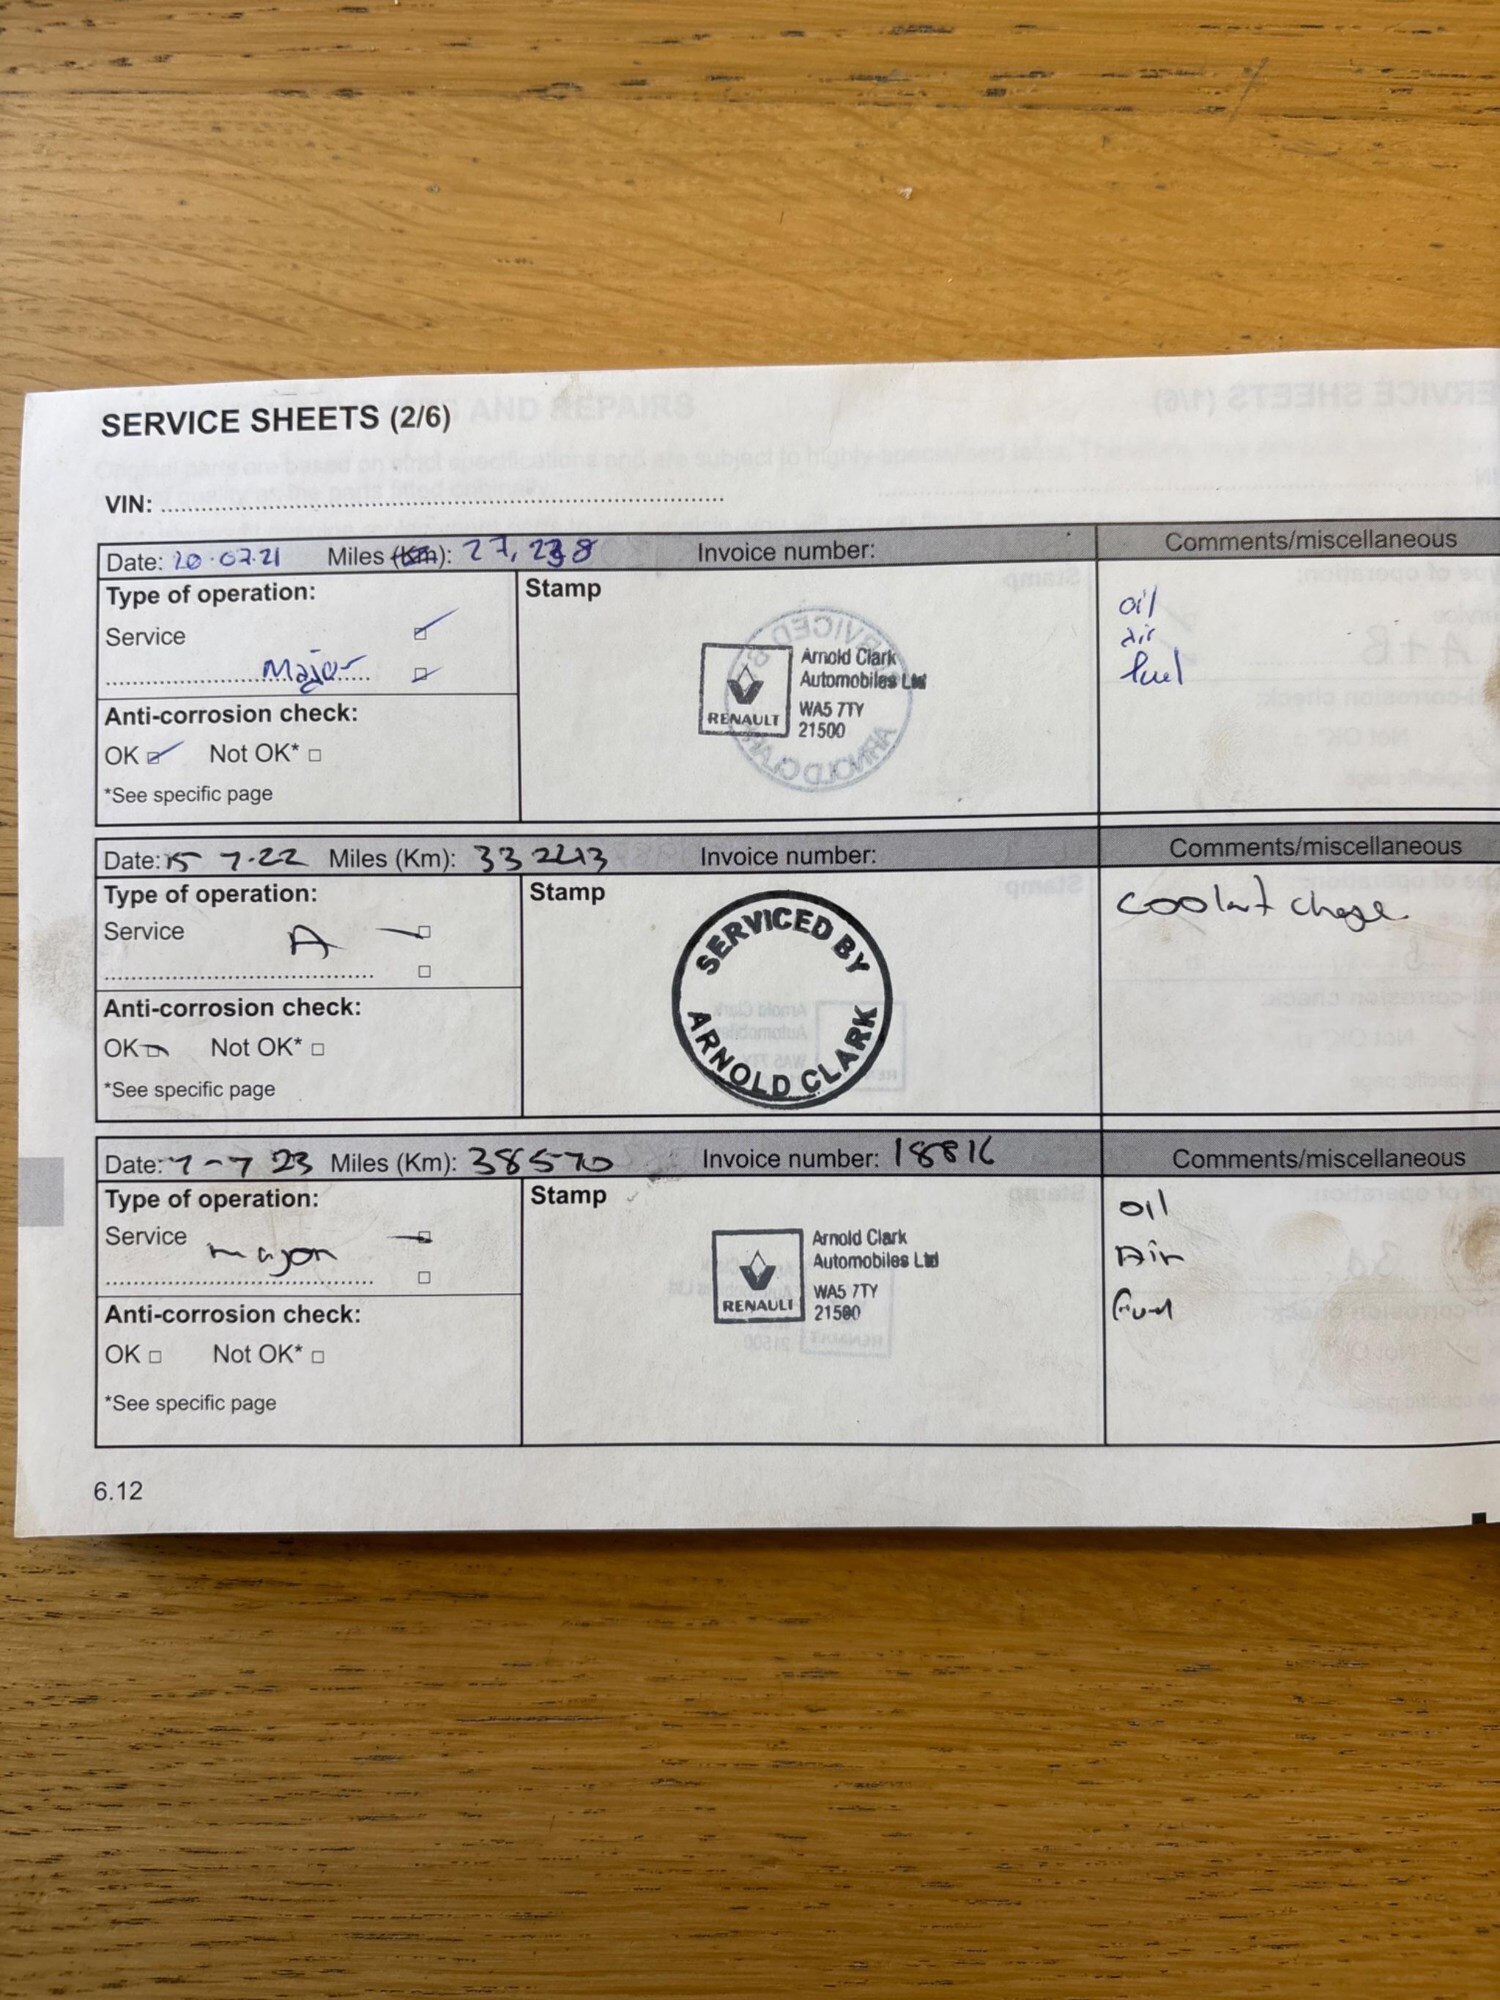 SERVICE SHEETS (2/6)
VIN:
Date: 20.07.21 Miles (Km): 27,238 Invoice number: Comments/miscellaneous
Type of operation:
Service
Major
Anti-corrosion check:
OK Not OK*
*See specific page
Stamp
RENAULT
Arnold Clark
Automobiles Ltd
WA5 7TY
21500
SERVICED BY
ARNOLD CLARK
oil
air
fuel
Date: 15 7.22 Miles (Km): Invoice number: Comments/miscellaneous
Type of operation:
Service A
Anti-corrosion check:
OK Not OK*
*See specific page
Stamp
SERVICED BY
ARNOLD CLARK
coolant change
Date: 7-7 23 Miles (Km): 38570 Invoice number: 18816 Comments/miscellaneous
Type of operation:
Service major
Anti-corrosion check:
OK Not OK*
*See specific page
Stamp
RENAULT
Arnold Clark
Automobiles Ltd
WA5 7TY
21500
oil
Air
Fuel
6.12